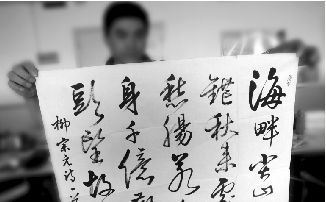 海畔尖山
鋩秋来處
愁腸若
身千億
頭望故
柳宗元詩一